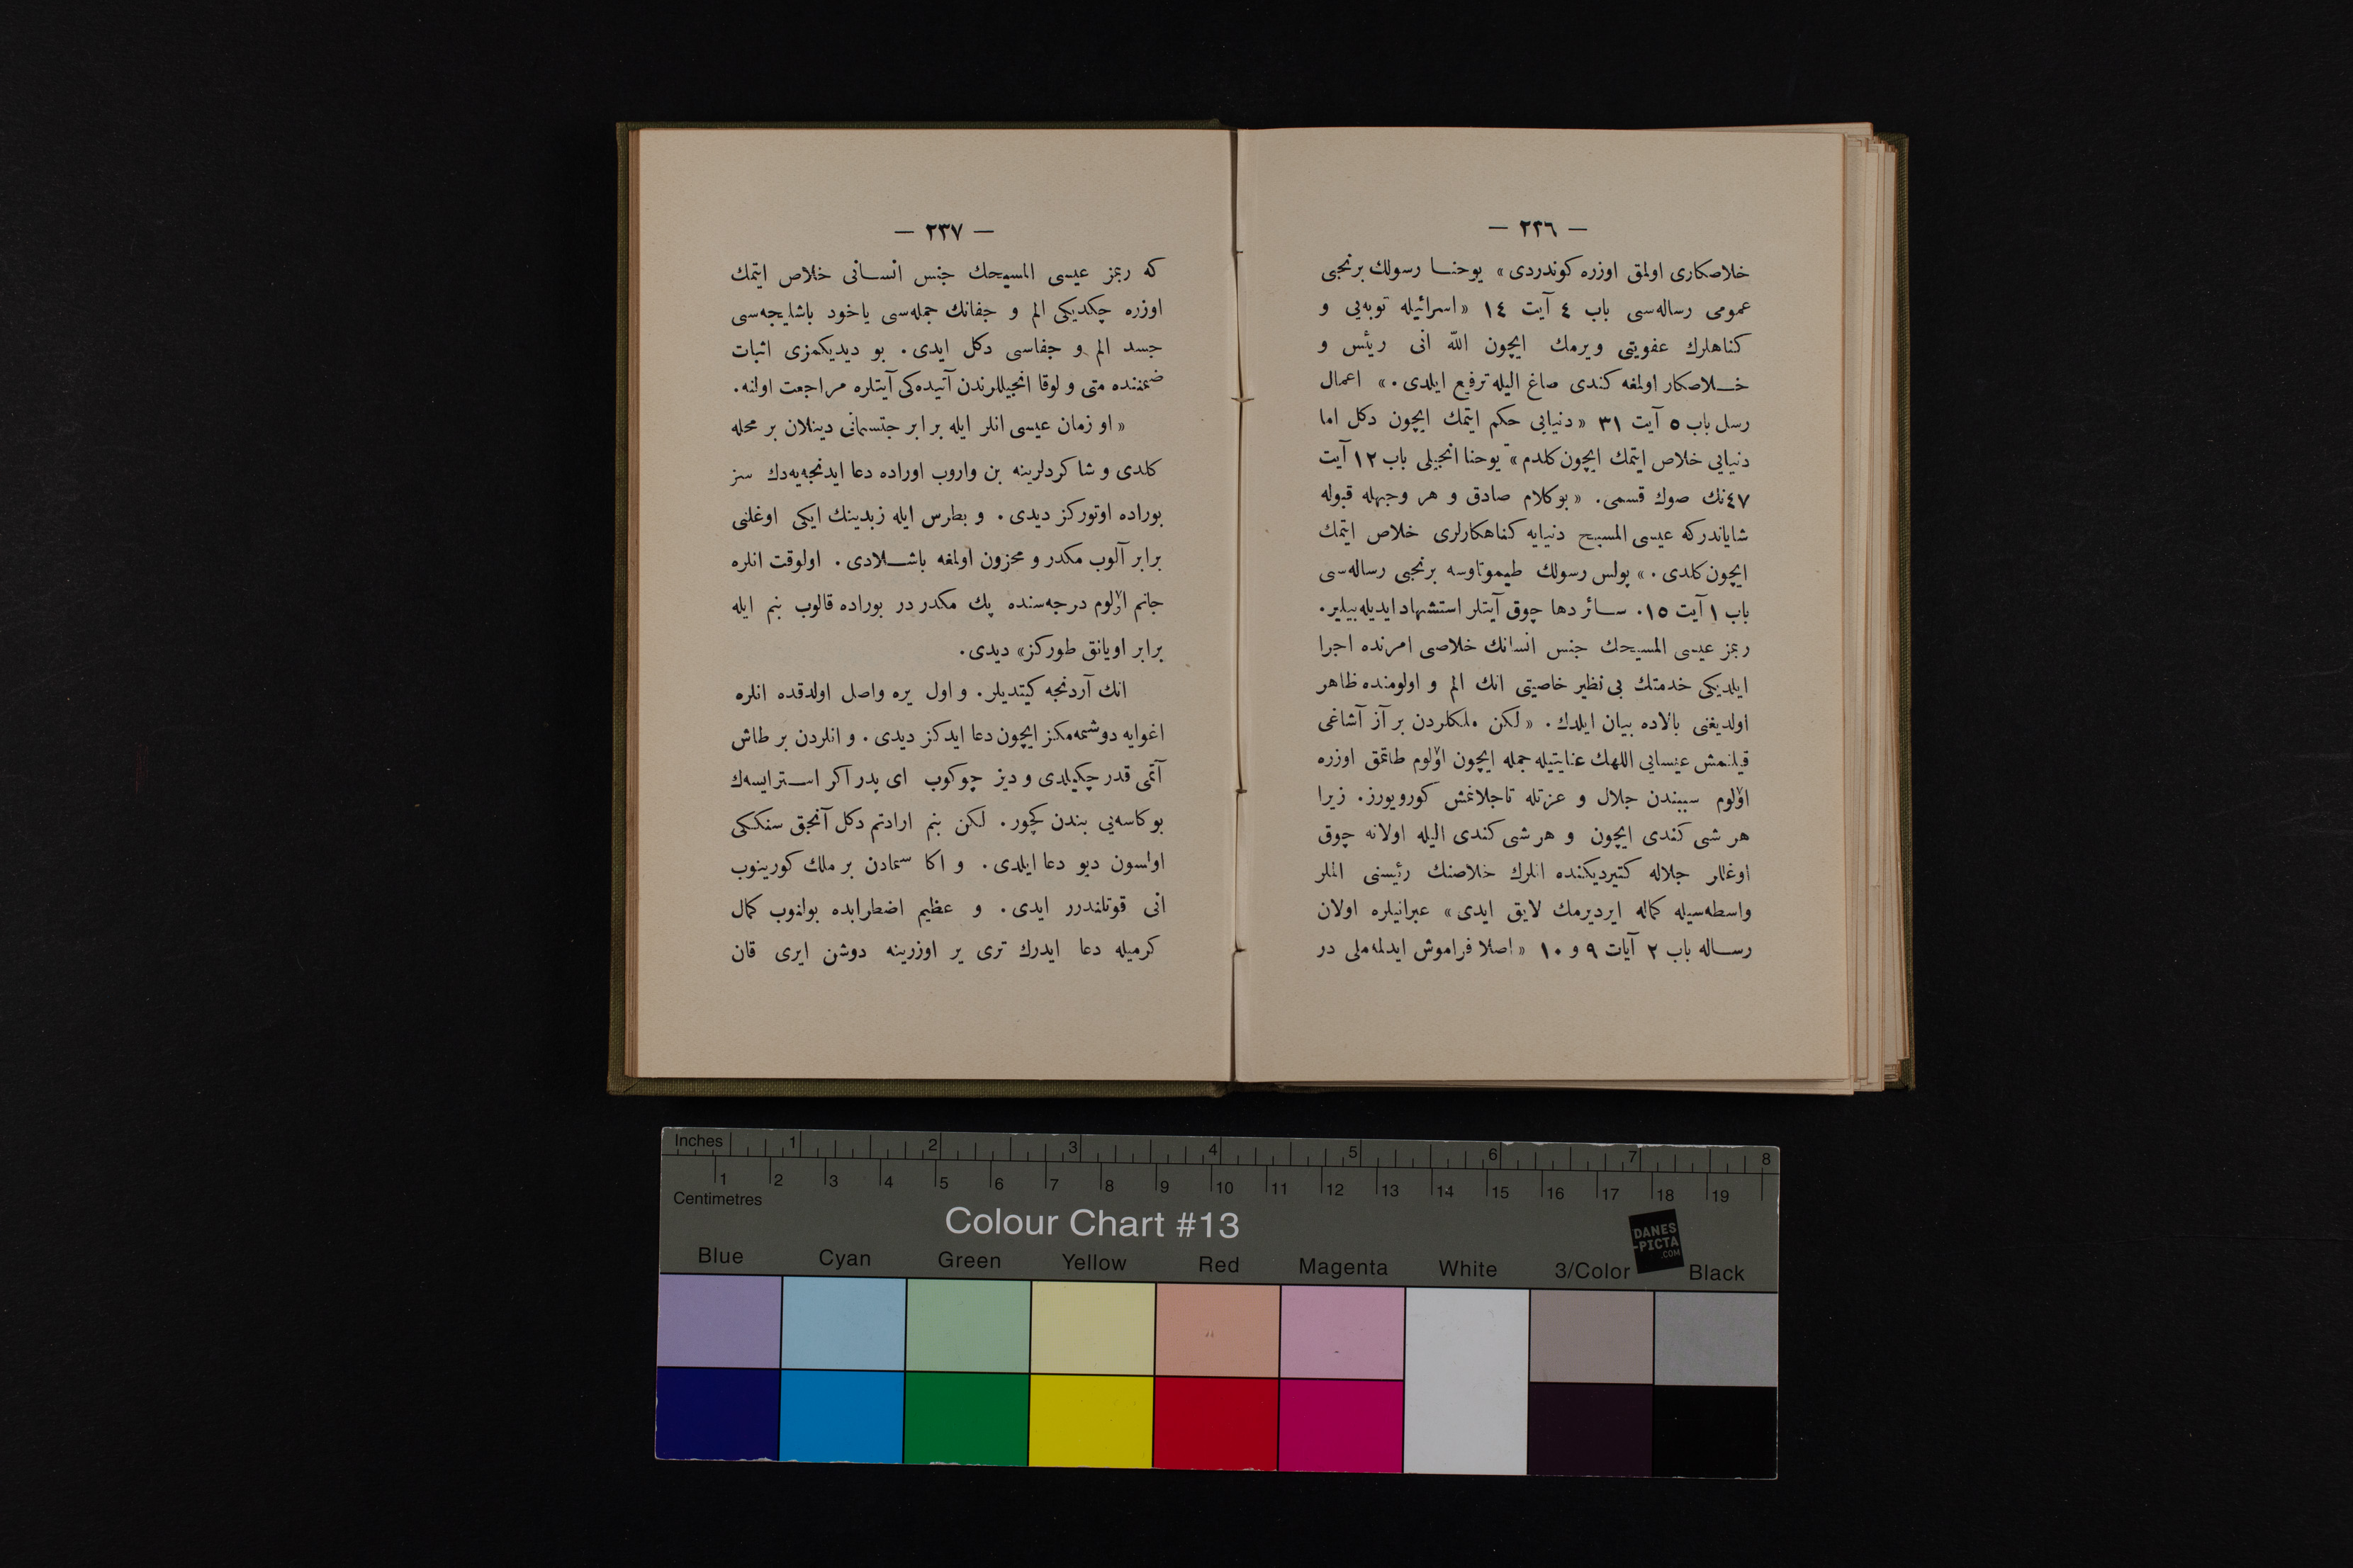 — ٢٣٦ —
خلاصكاری اولمق اوزره كوندردی» يوحنـا رسولك برنجی
عمومی رساله‌سی باب ٤ آيت ١٤ «اسرائيله توبه‌يی و
كناهلرك عفويتی ويرمك ايچون اللّه انی ريئس و
خـلاصكار اولمغه كندی صاغ اليله ترفيع ايلدی.» اعمال
رسل باب ٥ آيت ٣١ «دنيايی حكم ايتمك ايچون دكل اما
دنيايی خلاص ايتمك ايچون كلدم» يوحنا انجيلی باب ١٢ آيت
٤٧نك صوك قسمی. «بوكلام صادق و هر وجهله قبوله
شاياندركه عيسی المسيح دنيايه كناهكارلری خلاص ايتمك
ايچون كلدی.» پولس رسولك طيموتاوسه برنجی رساله‌سی
باب ١ آيت ١٥. سـائر دها چوق آيتلر استشهاد ايديله‌بيلير.
ربمز عيسی المسيحك جنس انسانك خلاصی امرنده اجرا
ايلديكی خدمتك بی نظير خاصيتی انك الم و اولومنده ظاهر
اولديغنی بالاده بيان ايلدك. «لكن ملكلردن بر آز آشاغی
قيلنمش عيسايی اللهك عنايتيله جمله ايچون اولوم طاتمق اوزره
اولوم سببندن جلال و عزتله تاجلانمش كورويورز. زيرا
هر شی كندی ايچون و هر شی كندی اليله اولانه چوق
اوغللر جلاله كتيرديكنده انلرك خلاصنك رئيسنی الملر
واسطه‌سيله كماله ايرديرمك لايق ايدی» عبرانيلره اولان
رسـاله باب ٢ آيات ٩ و ١٠ «اصلا فراموش ايدلمه‌ملی در
— ٢٣٧ —
كه ربمز عيسی المسيحك جنس انسـانی خلاص ايتمك
اوزره چكديكی الم و جفانك جمله‌سی ياخود باشليجه‌سی
جسد الم و جفاسی دكل ايدی. بو ديديكمزی اثبات
ضمننده متی و لوقا انجيللرندن آتيده‌كی آيتلره مراجعت اولنه.
«او زمان عيسی انلر ايله برابر جتسمانی دينلان بر محله
كلدی و شاكردلرينه بن واروب اوراده دعا ايدنجه‌يه‌دك سز
بوراده اوتوركز ديدی. و بطرس ايله زبدينك ايكی اوغلنی
برابر آلوب مكدر و محزون اولمغه باشـلادی. اولوقت انلره
جانم اولوم درجه‌سنده پك مكدر در بوراده قالوب بنم ايله
برابر اويانق طوركز» ديدی.
انك آردنجه كيتديلر. و اول يره واصل اولدقده انلره
اغوايه دوشمه‌مكز ايچون دعا ايدكز ديدی. و انلردن بر طاش
آتمی قدر چكيلدی و ديز چوكوب ای پدر اكر اسـترايسه‌ك
بوكاسه‌يی بندن كچور. لكن بنم ارادتم دكل آنجق سنككی
اولسون ديو دعا ايلدی. و اكا سمادن بر ملك كورينوب
انی قوتلندرر ايدی. و عظيم اضطرابده بولنوب كمال
كرميله دعا ايدرك تری ير اوزرينه دوشن ايری قان
Inches 1 2 3 4 5 6 7 8
1 2 3 4 5 6 7 8 9 10 11 12 13 14 15 16 17 18 19
Centimetres
Colour Chart #13
DANES
-PICTA
.COM
Blue Cyan Green Yellow Red Magenta White 3/Color Black